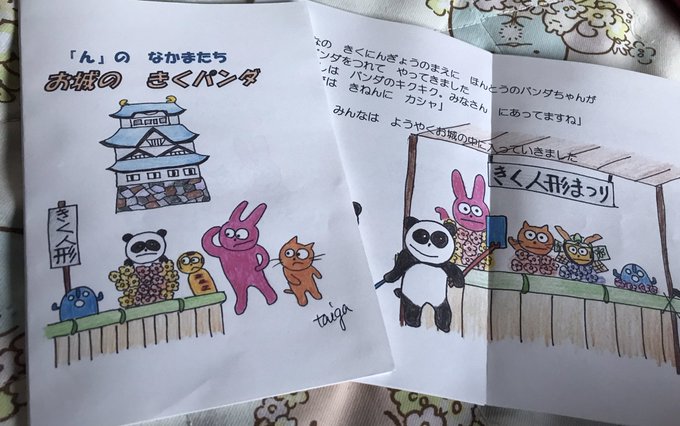 「ん」の なかまたち
お城の きくパンダ
きく人形
taiga
なの きくにんぎょうのまえに ほんとうのパンダちゃんが
ンダをつれて やってきました
は パンダのキクキク。みなさん にあってますね」
は きねんに カシャ」
みんなは ようやくお城の中に入っていきました
きく人形まつり